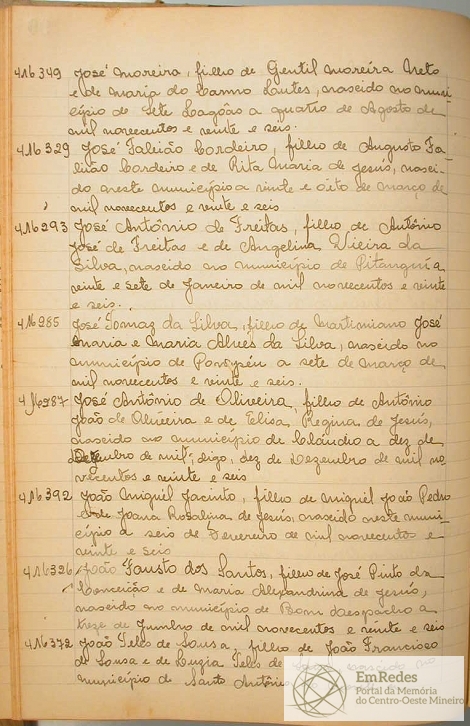 416349 José Moreira, filho de Gentil Moreira Neto
e de Maria do Carmo Lentes, nascido no muni-
cípio de Sete Lagôas a quatro de Agosto de
mil novecentos e vinte e seis.
416329 José Faleião Cordeiro, filho de Augusto Fa-
leião Cordeiro e de Rita Maria de Jesus, nasci-
do neste município a vinte e oito de março de
mil novecentos e vinte e seis
416293 José Antônio de Freitas, filho de Antônio
José de Freitas e de Angelina Vieira da
Silva, nascido no município de Pitanguí a
vinte e sete de Janeiro de mil novecentos e vinte
e seis.
416985 José Tomaz da Silva, filho de Martimiano José
Maria e Maria Alves da Silva, nascido no
município de Pompéu a sete de março de
mil novecentos e vinte e seis.
José Antônio de Oliveira, filho de Antônio
João de Oliveira e de Elisa Regina de Jesús,
nascido no município de Cláudio a dez de
Dezembro de mil, digo, dez de Dezembro de mil no-
vecentos e vinte e seis
416392 João Miguel Jacinto, filho de Miguel João Pedro
e de Joana Rosalina de Jesus, nascido neste muni-
cípio a seis de Fevereiro de mil novecentos e
vinte e seis
416326 João Fausto dos Santos, filho de José Pinto da
Conceição e de Maria Alexandrina de Jesús,
nascido no município de Bom Despacho a
treze de Junho de mil novecentos e vinte e seis
416372 João Teles de Sousa, filho de João Francisco
de Sousa e de Luzia Teles de
município de Santo Antônio
EmRedes
Portal da Memória
do Centro-Oeste Mineiro